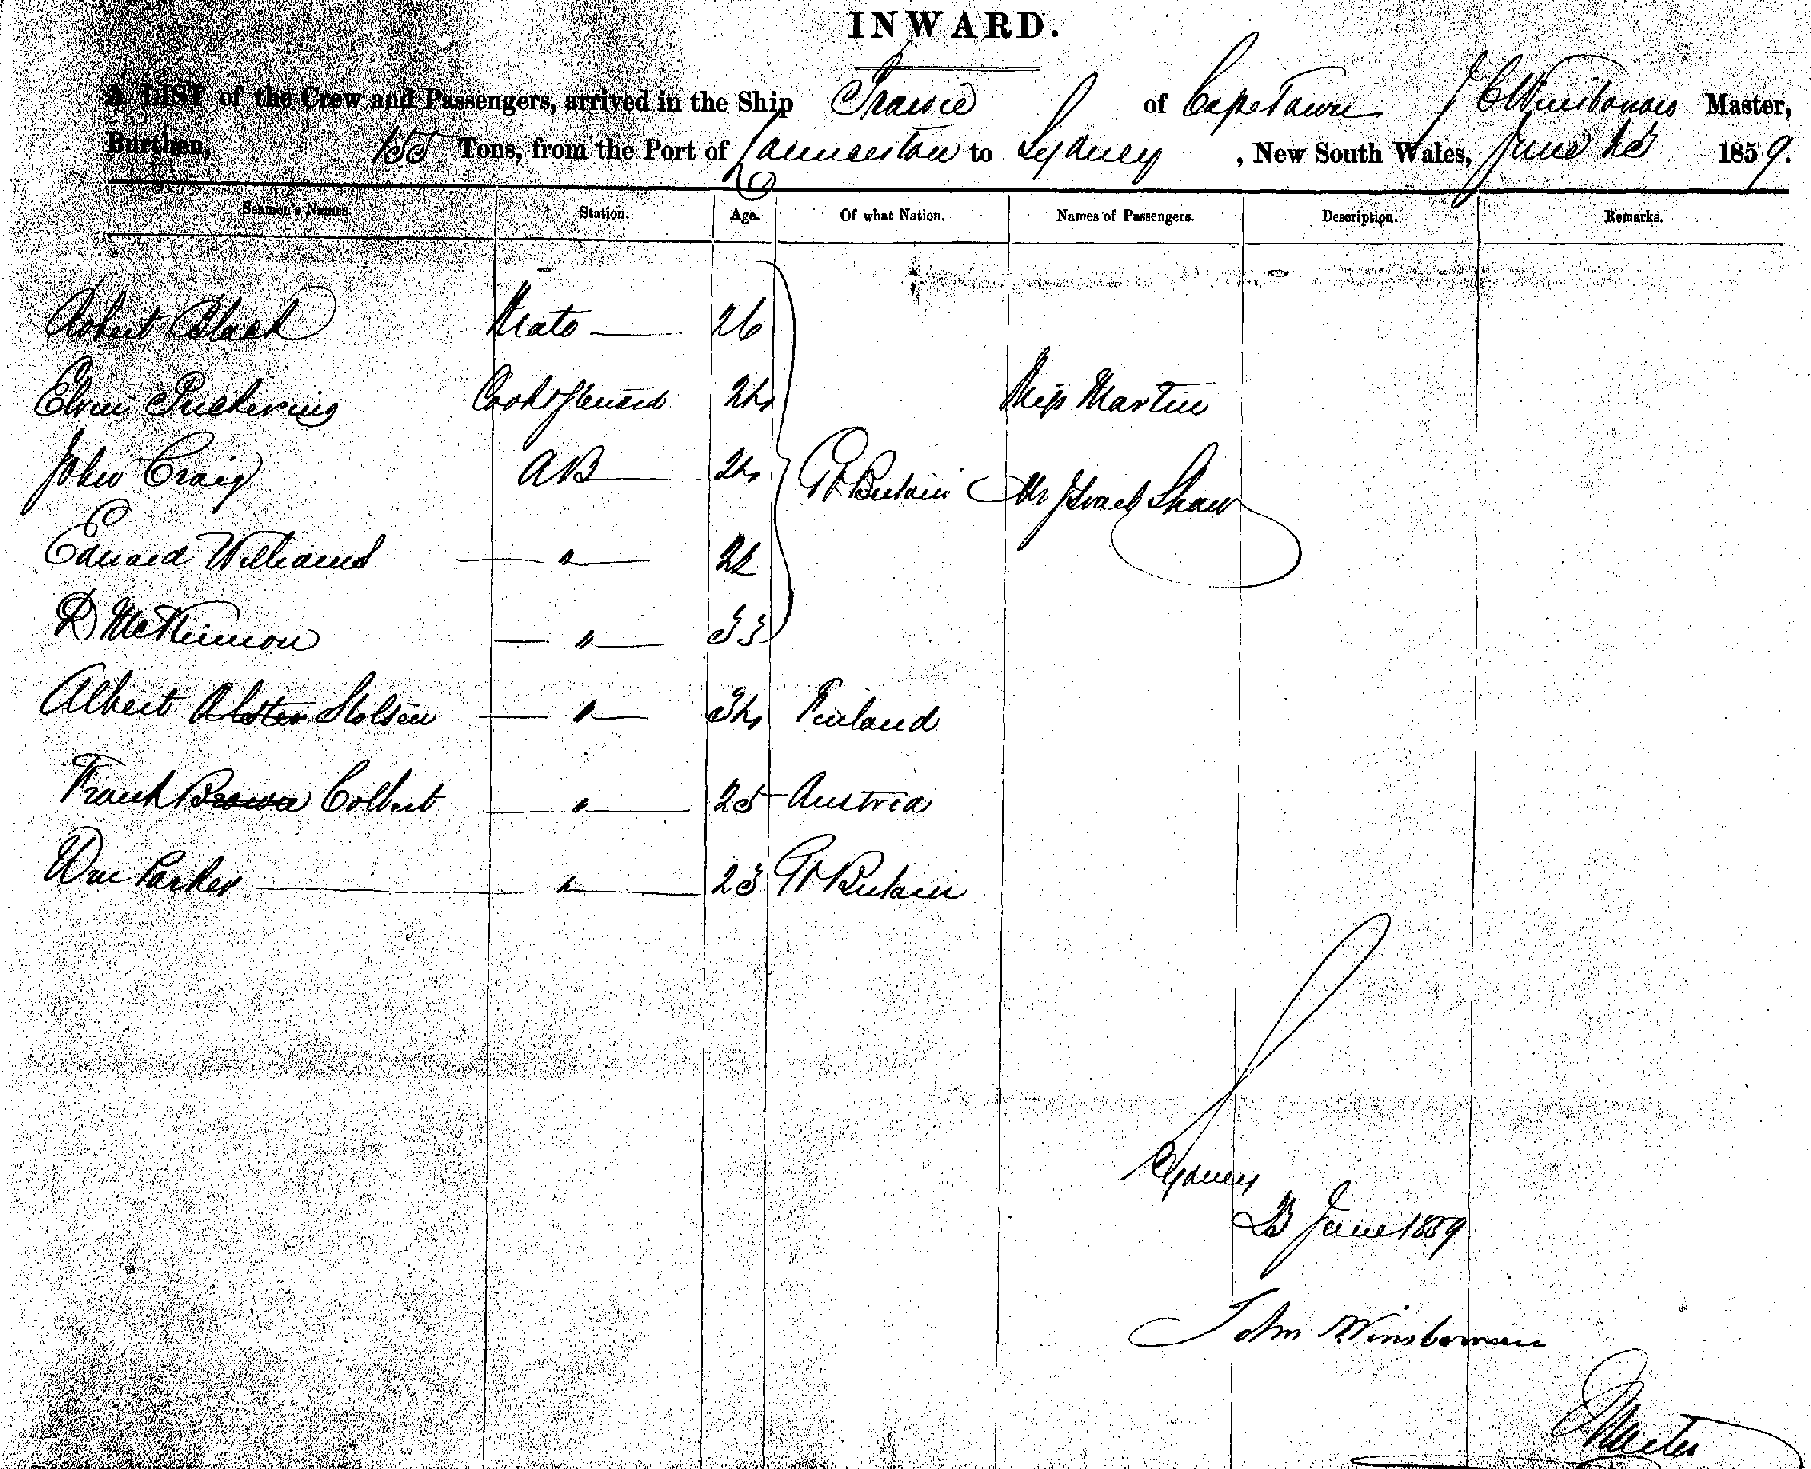 INWARD.
A LIST of the Crew and Passengers, arrived in the Ship of Cape Town J C Master,
Burthen, 155 Tons, from the Port of Launceston to Sydney, New South Wales, June 1859.
Seamen's Names. Station. Age. Of what Nation. Names of Passengers. Description. Remarks.
Robert Black Mate 26
Pickering Cook & Steward 24 Miss Martin
John Craig AB 24 Gt Britain Mr Israel Shaw
Edward Williams " 22
D McKinnon " 33
Albert Alster Holsen " 34 Finland
Frank Brown Colbert " 25 Austria
Wm Parker " 23 Gt Britain
Sydney
June 1859
John Winsborrow
Master